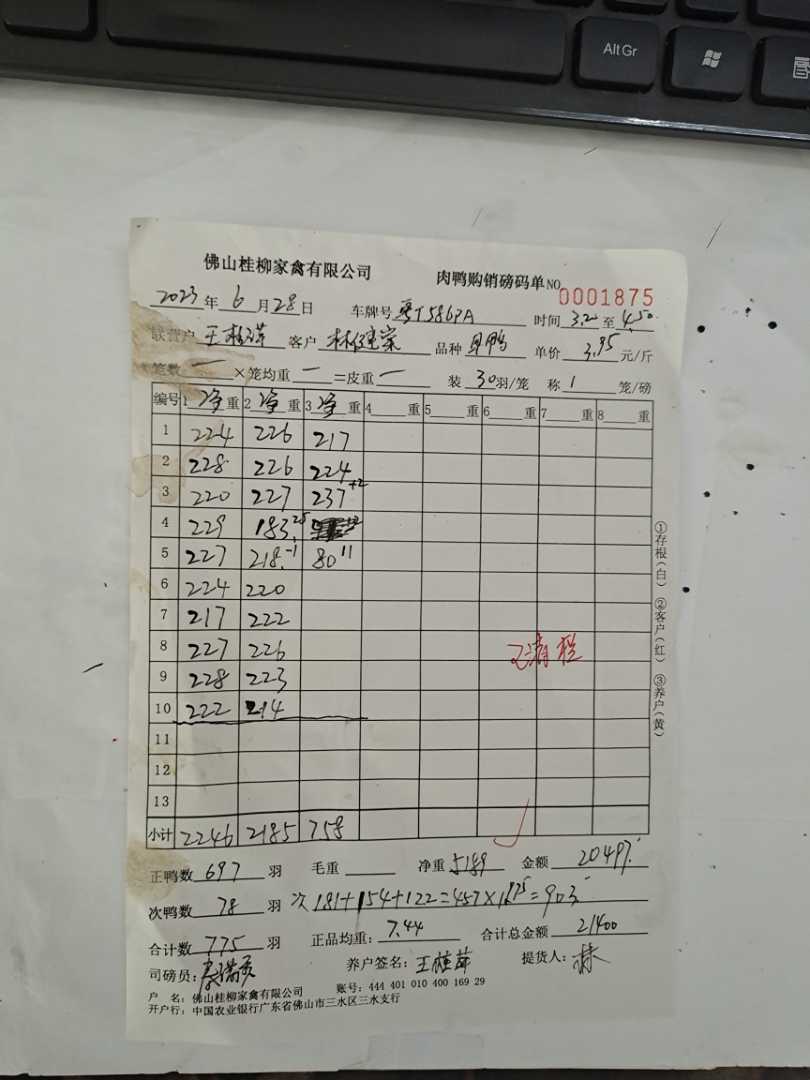 Alt Gr
佛山桂柳家禽有限公司 肉鸭购销磅码单 NO 0001875
2023年6月28日 车牌号 粤T5867A 时间 3.20 至 4.50
联营户 客户 品种 单价 3.95 元/斤
笼数 一 ×笼均重 一 =皮重 一 装 30 羽/笼 称 1 笼/磅
编号 1 净 重 2 净 重 3 净 重 4 重 5 重 6 重 7 重 8 重
1 224 226 217
2 228 226 224
3 220 227 237 +2
4 229 183.25
5 227 218.-1 80 11
6 224 220
7 217 222
8 227 226
9 228 223
10 222 214
11
12
13
小计 2246 2185 758
正鸭数 697 羽 毛重 净重 5189 金额 20497
次鸭数 78 羽 次 181+154+122=457× =903
合计数 775 羽 正品均重: 7.44 合计总金额 21400
司磅员: 养户签名: 提货人:
户 名: 佛山桂柳家禽有限公司 账号: 444 401 010 400 169 29
开户行: 中国农业银行广东省佛山市三水区三水支行
①存根(白) ②客户(红) ③养户(黄)